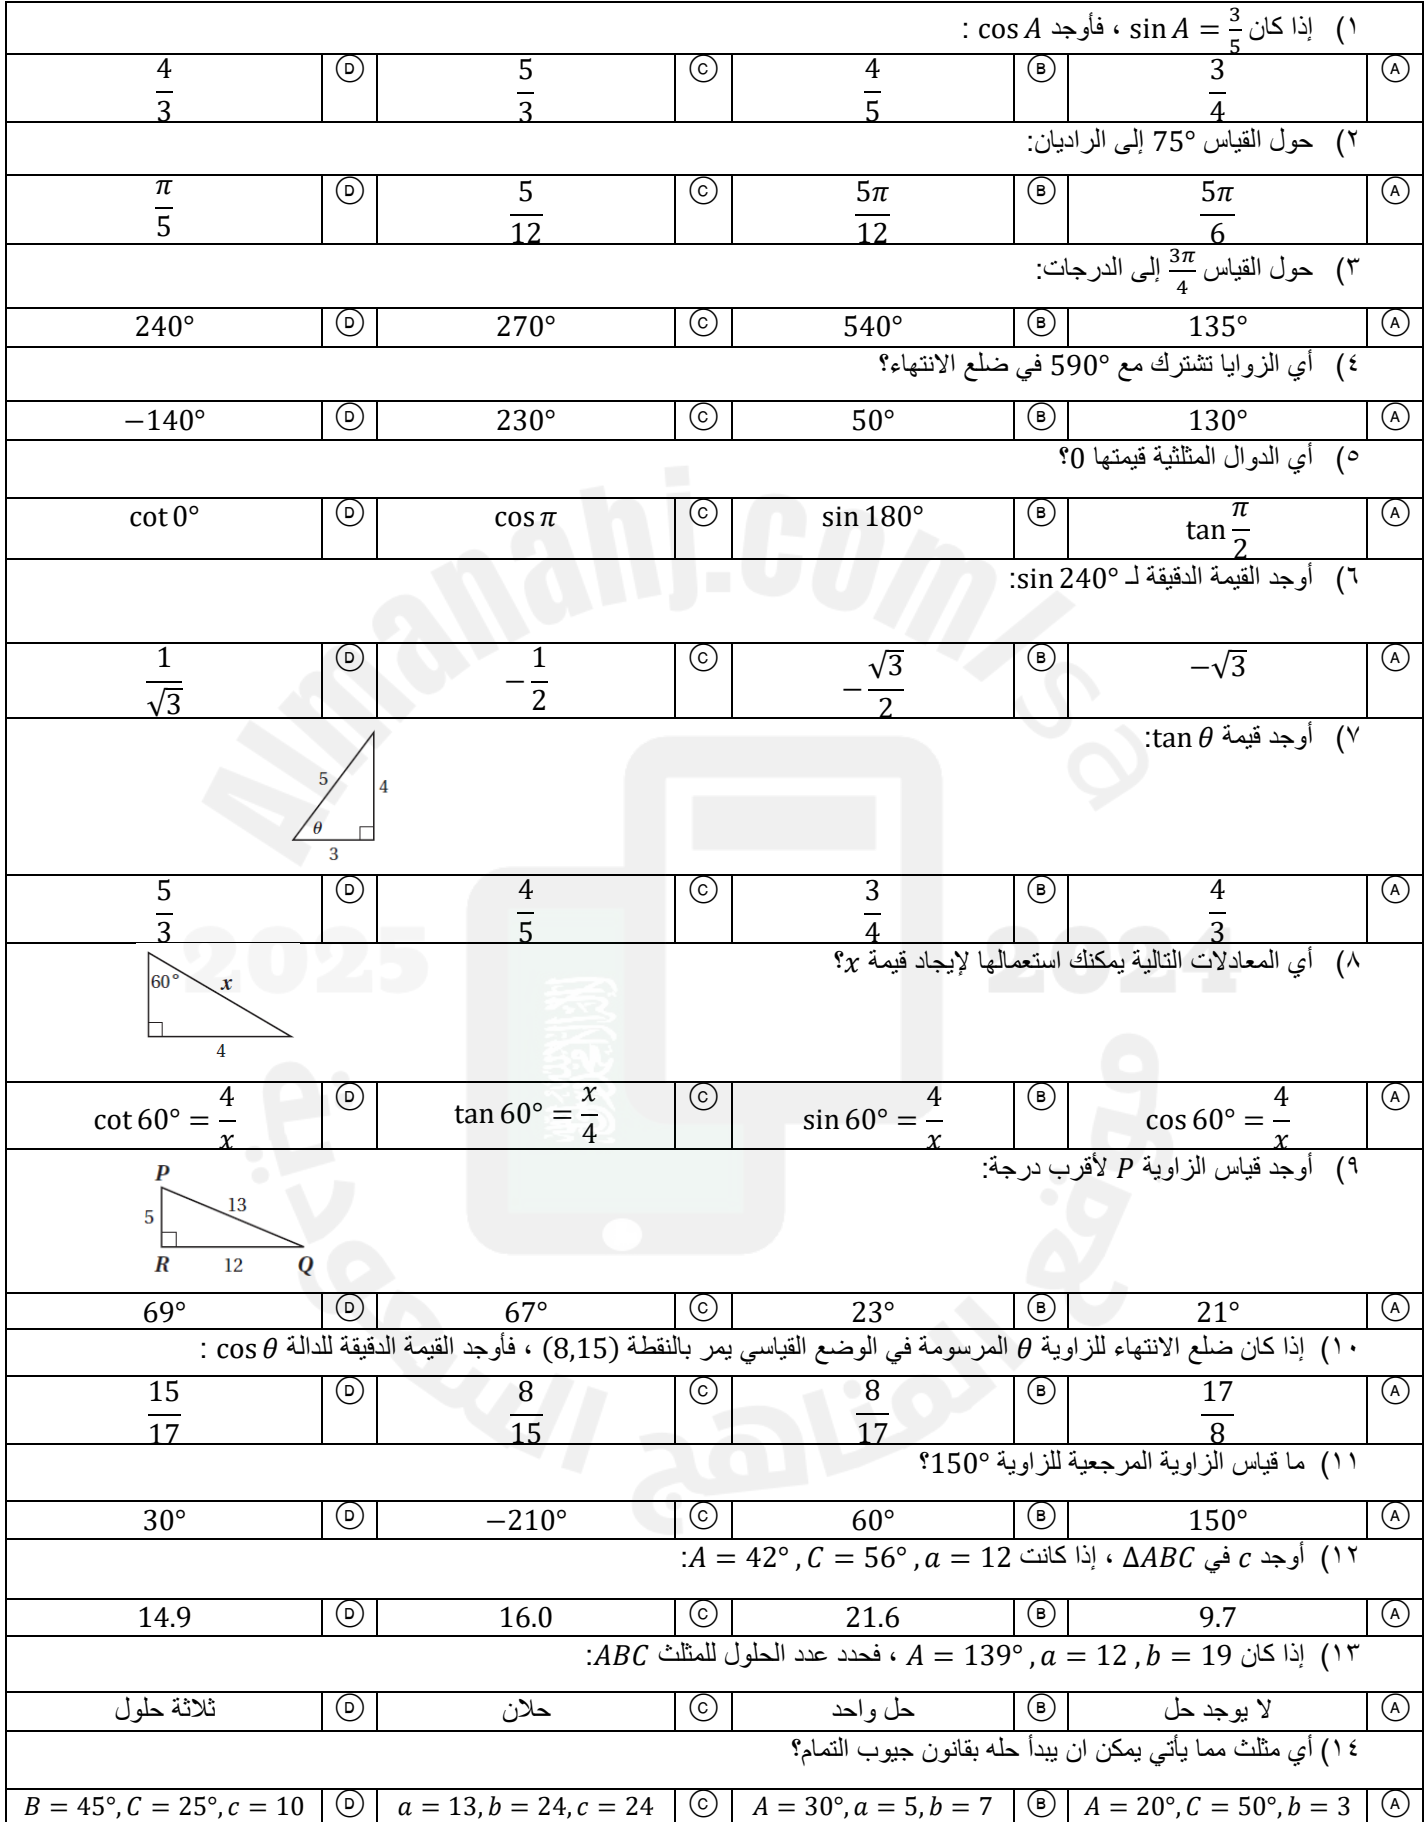 ١) إذا كان sin A = 3/5 ، فأوجد cos A :
Ⓐ 3/4 Ⓑ 4/5 Ⓒ 5/3 Ⓓ 4/3
٢) حول القياس 75° إلى الراديان:
Ⓐ 5π/6 Ⓑ 5π/12 Ⓒ 5/12 Ⓓ π/5
٣) حول القياس 3π/4 إلى الدرجات:
Ⓐ 135° Ⓑ 540° Ⓒ 270° Ⓓ 240°
٤) أي الزوايا تشترك مع 590° في ضلع الانتهاء؟
Ⓐ 130° Ⓑ 50° Ⓒ 230° Ⓓ −140°
٥) أي الدوال المثلثية قيمتها 0؟
Ⓐ tan π/2 Ⓑ sin 180° Ⓒ cos π Ⓓ cot 0°
٦) أوجد القيمة الدقيقة لـ sin 240°:
Ⓐ −√3 Ⓑ −√3/2 Ⓒ −1/2 Ⓓ 1/√3
٧) أوجد قيمة tan θ:
5
4
θ
3
Ⓐ 4/3 Ⓑ 3/4 Ⓒ 4/5 Ⓓ 5/3
٨) أي المعادلات التالية يمكنك استعمالها لإيجاد قيمة x؟
60° x
4
Ⓐ cos 60° = 4/x Ⓑ sin 60° = 4/x Ⓒ tan 60° = x/4 Ⓓ cot 60° = 4/x
٩) أوجد قياس الزاوية P لأقرب درجة:
P
5 13
R 12 Q
Ⓐ 21° Ⓑ 23° Ⓒ 67° Ⓓ 69°
١٠) إذا كان ضلع الانتهاء للزاوية θ المرسومة في الوضع القياسي يمر بالنقطة (8,15) ، فأوجد القيمة الدقيقة للدالة cos θ :
Ⓐ 17/8 Ⓑ 8/17 Ⓒ 8/15 Ⓓ 15/17
١١) ما قياس الزاوية المرجعية للزاوية 150°؟
Ⓐ 150° Ⓑ 60° Ⓒ −210° Ⓓ 30°
١٢) أوجد c في ΔABC ، إذا كانت A = 42° , C = 56° , a = 12:
Ⓐ 9.7 Ⓑ 21.6 Ⓒ 16.0 Ⓓ 14.9
١٣) إذا كان A = 139° , a = 12 , b = 19 ، فحدد عدد الحلول للمثلث ABC:
Ⓐ لا يوجد حل Ⓑ حل واحد Ⓒ حلان Ⓓ ثلاثة حلول
١٤) أي مثلث مما يأتي يمكن ان يبدأ حله بقانون جيوب التمام؟
Ⓐ A = 20°, C = 50°, b = 3 Ⓑ A = 30°, a = 5, b = 7 Ⓒ a = 13, b = 24, c = 24 Ⓓ B = 45°, C = 25°, c = 10
Almanahj.com/sa
2025 2024
موقع المناهج السعودية